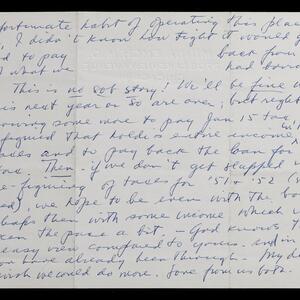 fortunate habit of operating this place
, I didn't know how tight it would g
d to pay back from
what we had borro
This is no sob story! We'll be fine w
is next year or so are over; but right
some more to pay Jan 15 tax
figured that holds entire income
axes and to pay back the loan for
Then - if we don't get slapped
re-figuring of taxes for '51 + '52 (
), we hope to be even with the bo
haps then with some income which w
en the pace a bit. - God knows I
easy view compared to yours - and in
ou have already been through. My de
wish we could do more. Love from us both.